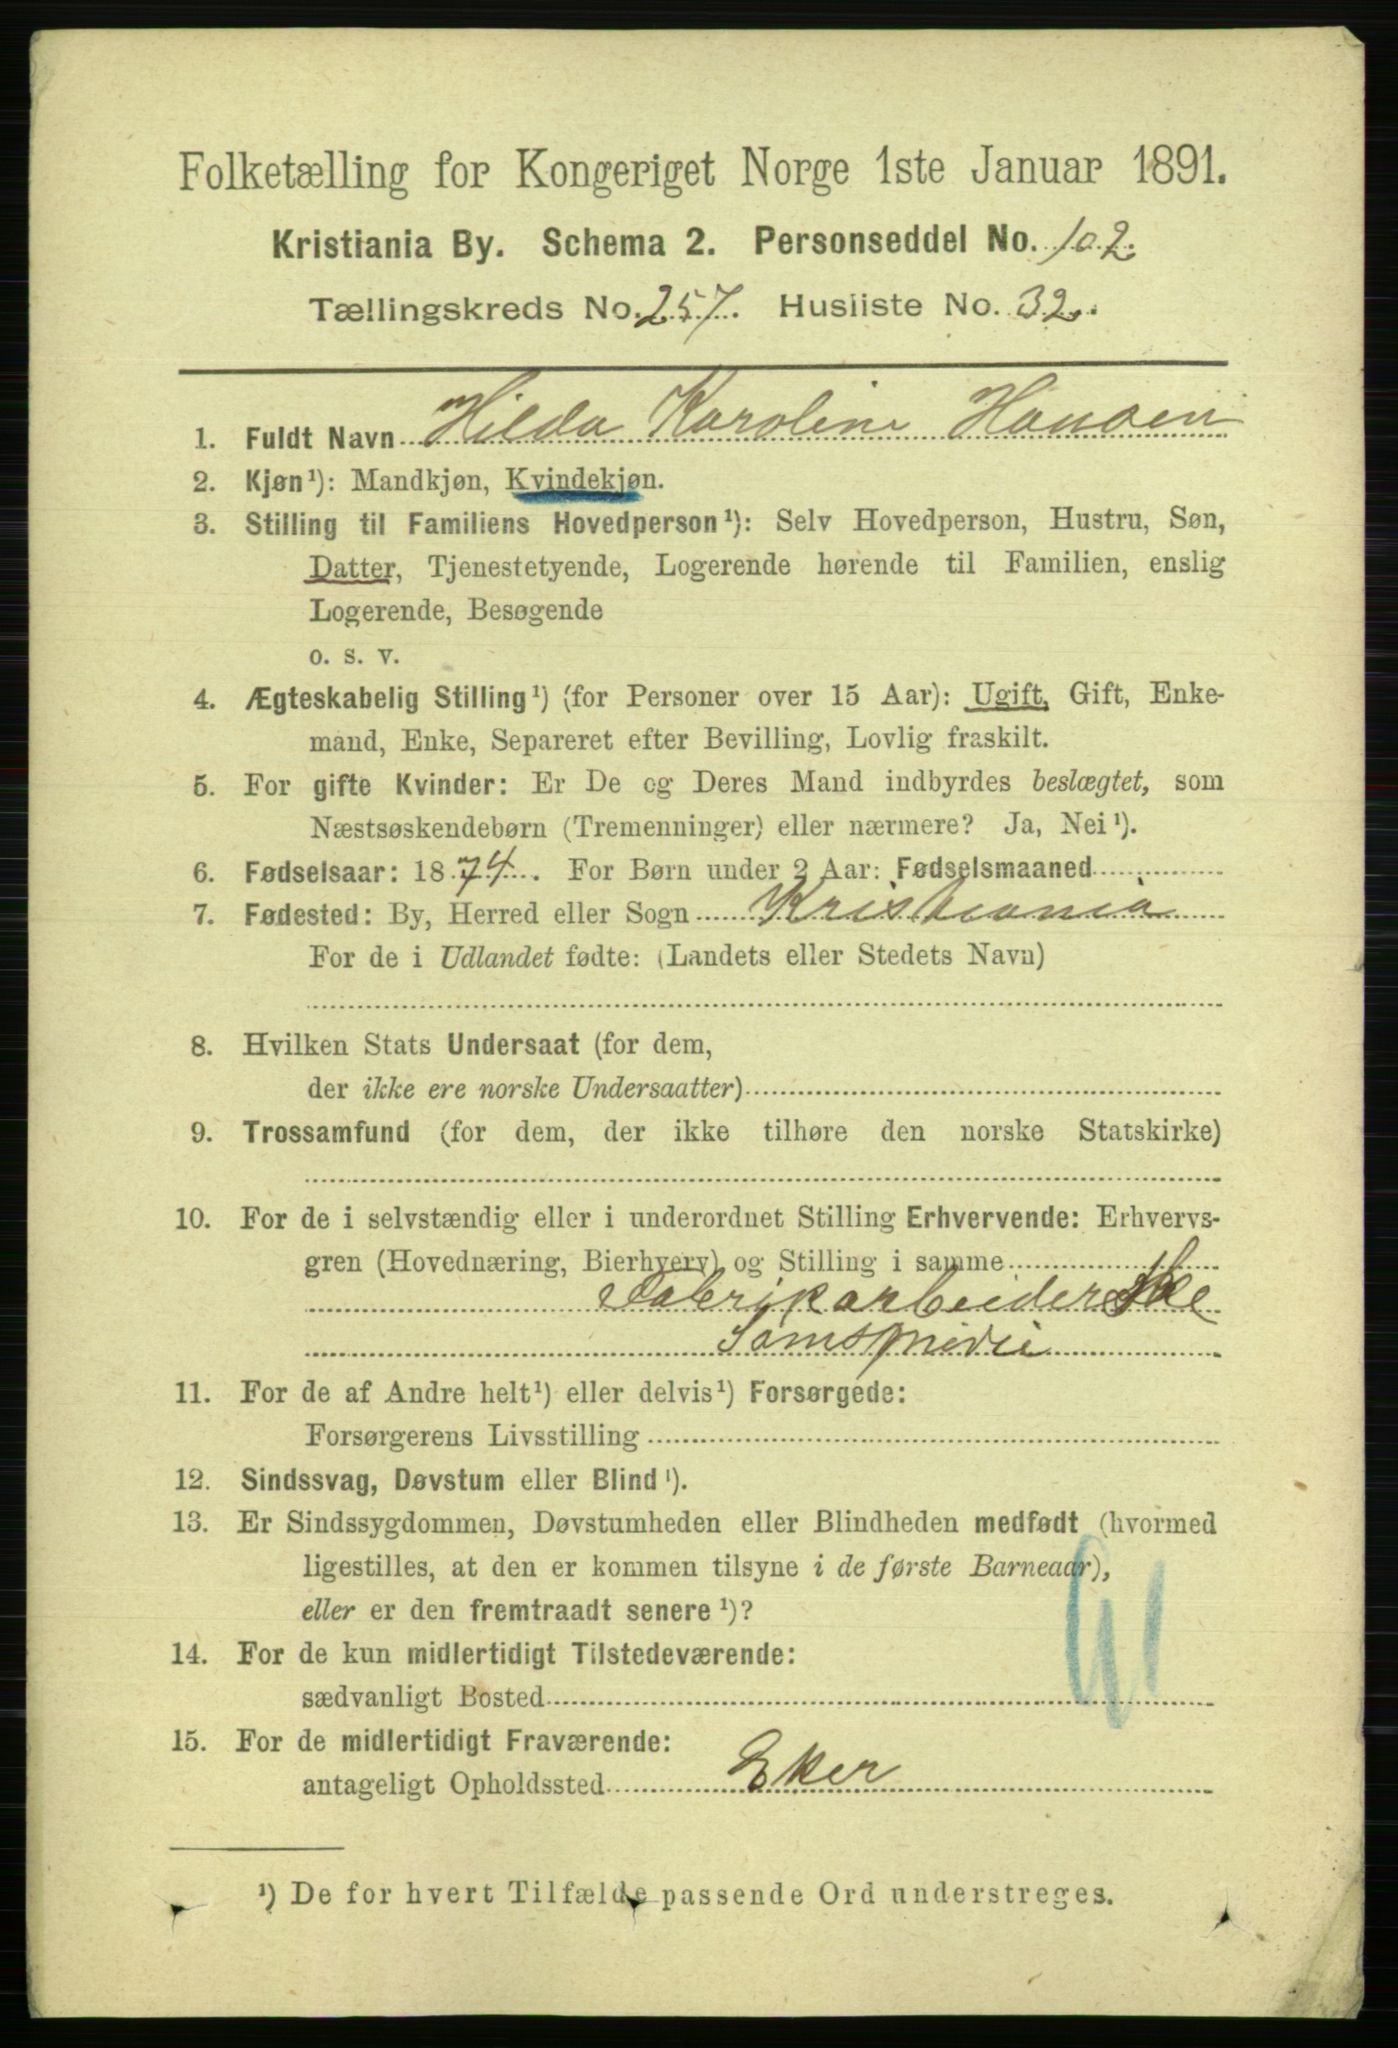 Folketælling for Kongeriget Norge 1ste Januar 1891.
Kristiania By. Schema 2. Personseddel No. 102.
Tællingskreds No. 257. Husliste No. 32.
1. Fuldt Navn Hilda Karoline Hansen
2. Kjøn¹): Mandkjøn, Kvindekjøn.
3. Stilling til Familiens Hovedperson¹): Selv Hovedperson, Hustru, Søn,
Datter, Tjenestetyende, Logerende hørende til Familien, enslig
Logerende, Besøgende
o. s. v.
4. Ægteskabelig Stilling¹) (for Personer over 15 Aar): Ugift, Gift, Enke-
mand, Enke, Separeret efter Bevilling, Lovlig fraskilt.
5. For gifte Kvinder: Er De og Deres Mand indbyrdes beslægtet, som
Næstsøskendebørn (Tremenninger) eller nærmere? Ja, Nei¹).
6. Fødselsaar: 1874. For Børn under 2 Aar: Fødselsmaaned
7. Fødested: By, Herred eller Sogn Kristiania
For de i Udlandet fødte: (Landets eller Stedets Navn)
8. Hvilken Stats Undersaat (for dem,
der ikke ere norske Undersaatter)
9. Trossamfund (for dem, der ikke tilhøre den norske Statskirke)
10. For de i selvstændig eller i underordnet Stilling Erhvervende: Erhvervs-
gren (Hovednæring, Bierhverv) og Stilling i samme
Fabrikarbeiderske
11. For de af Andre helt¹) eller delvis¹) Forsørgede:
Forsørgerens Livsstilling
12. Sindssvag, Døvstum eller Blind¹).
13. Er Sindssygdommen, Døvstumheden eller Blindheden medfødt (hvormed
ligestilles, at den er kommen tilsyne i de første Barneaar),
eller er den fremtraadt senere¹)?
14. For de kun midlertidigt Tilstedeværende:
sædvanligt Bosted
15. For de midlertidigt Fraværende:
antageligt Opholdssted Eker
¹) De for hvert Tilfælde passende Ord understreges.